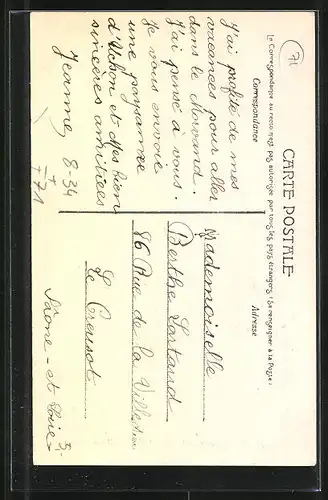 71
CARTE POSTALE
La Correspondance au recto n'est pas autorisée par tous les pays étrangers (Se renseigner à la Poste)
Correspondance
Adresse
J'ai profité de mes
vacances pour aller
dans le Morvand.
J'ai pensé à vous.
Je vous envoie
une paysanne
d'Uchon et mes bien
sincères amitiées
Jeanne 8-34
+ 71
Mademoiselle
Berthe
86 Rue de la Villedieu
Le Creusot
Saône-et-Loire